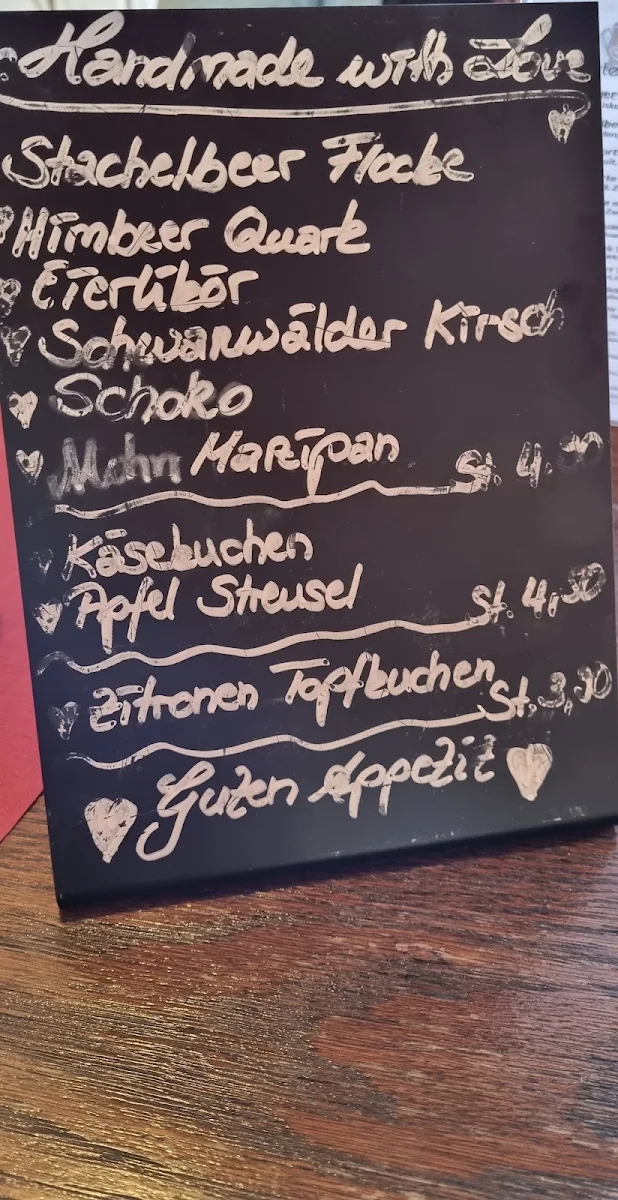 Handmade with Love
Stachelbeer Flocke
Himbeer Quark
Eierlikör
Schwarzwälder Kirsch
Schoko
Mohn Marzipan St. 4.
Käsekuchen
Apfel Streusel St. 4,30
Zitronen Topfkuchen St. 3,30
Guten Appetit